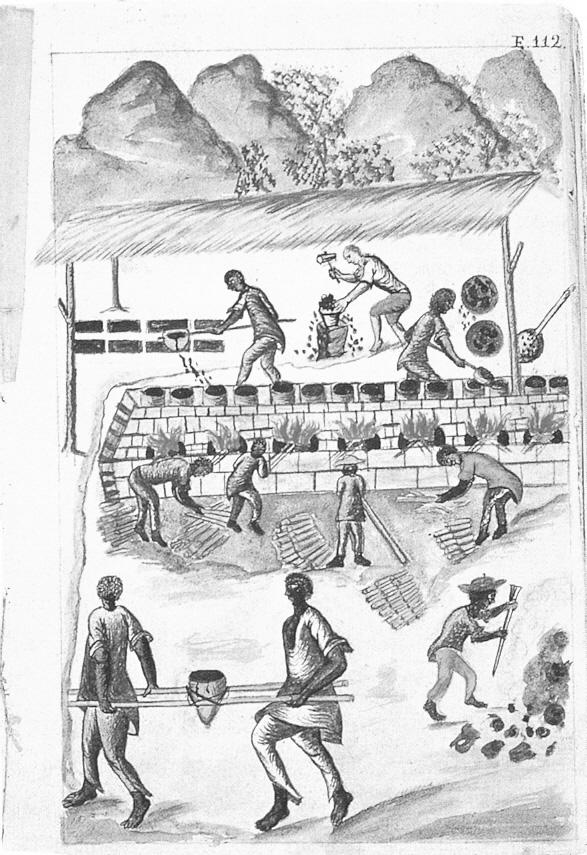 E. 112.